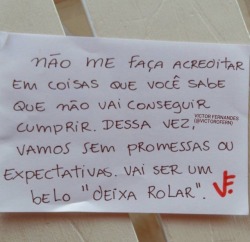 NÃO ME FAÇA ACREDITAR
EM COISAS QUE VOCÊ SABE
QUE NÃO VAI CONSEGUIR
VICTOR FERNANDES
(@VICTOROFERN)
CUMPRIR. DESSA VEZ,
VAMOS SEM PROMESSAS OU
EXPECTATIVAS. VAI SER UM
BELO "DEIXA ROLAR". VF.